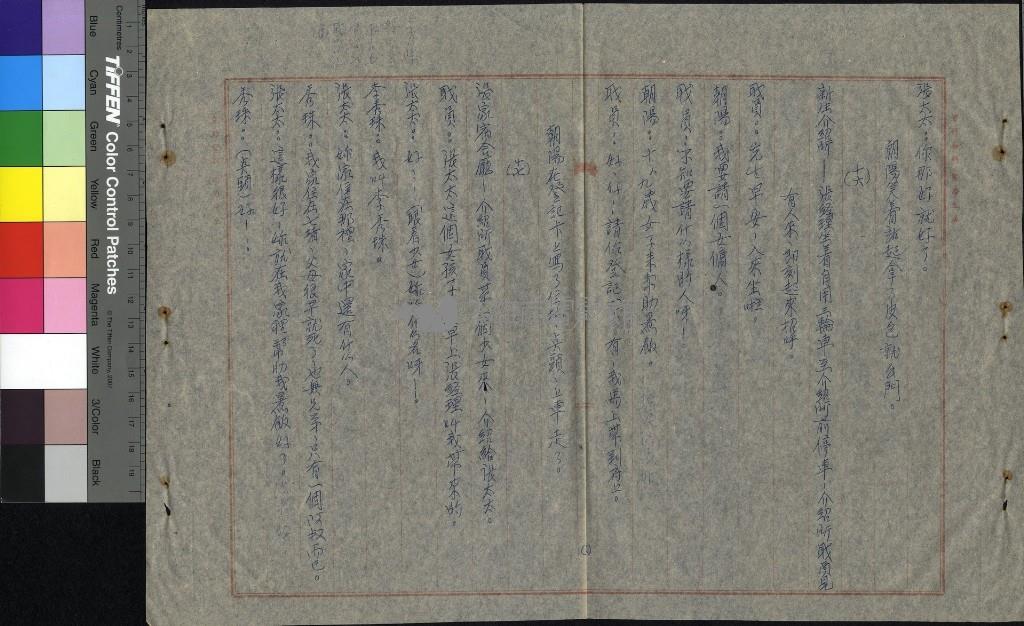 張太太：你那好就好了。
朝陽笑着站起拿一皮包就出門。
(十六)
新生介紹所——張經理坐着自用三輪車至介紹所前停車，介紹所職員見
有人來，即刻起來招呼。
職員：先生早安，入來坐啦。
朝陽：我要請一個女傭人。
職員：不知要請什么樣的人呀！
朝陽：十八、九歲女子來幫助煮飯。
職員：好、好，請你登記 有，我馬上帶到府上。
朝陽在登記卡上寫了 、點頭、上車走了。
(七)
張家客廳，介紹所職員帶一個少女來，介紹給張太太。
職員：張太太這個女孩子 早上張經理叫我帶來的。
張太太：好，（眼看少女）妳叫什么名呀！
李秀珠：我叫李秀珠。
張太太：妳家住在那裡，家中還有什么人。
秀珠：我家住在 ，父母很早就死了，也無兄弟，只有一個阿叔而已。
張太太：這樣很好，妳就在我家裡幫助我煮飯好了。
秀珠：（点頭）好！
Centimetres
TIFFEN Color Control Patches
© The Tiffen Company, 2007
Blue Cyan Green Yellow Red Magenta White 3/Color Black
1 2 3 4 5 6 7 8 9 10 11 12 13 14 15 16 17 18 19